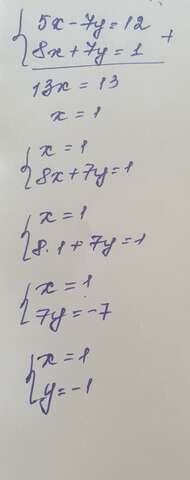 5x-7y=12
8x+7y=1 +
13x=13
x=1
x=1
8x+7y=1
x=1
8·1+7y=1
x=1
7y=-7
x=1
y=-1